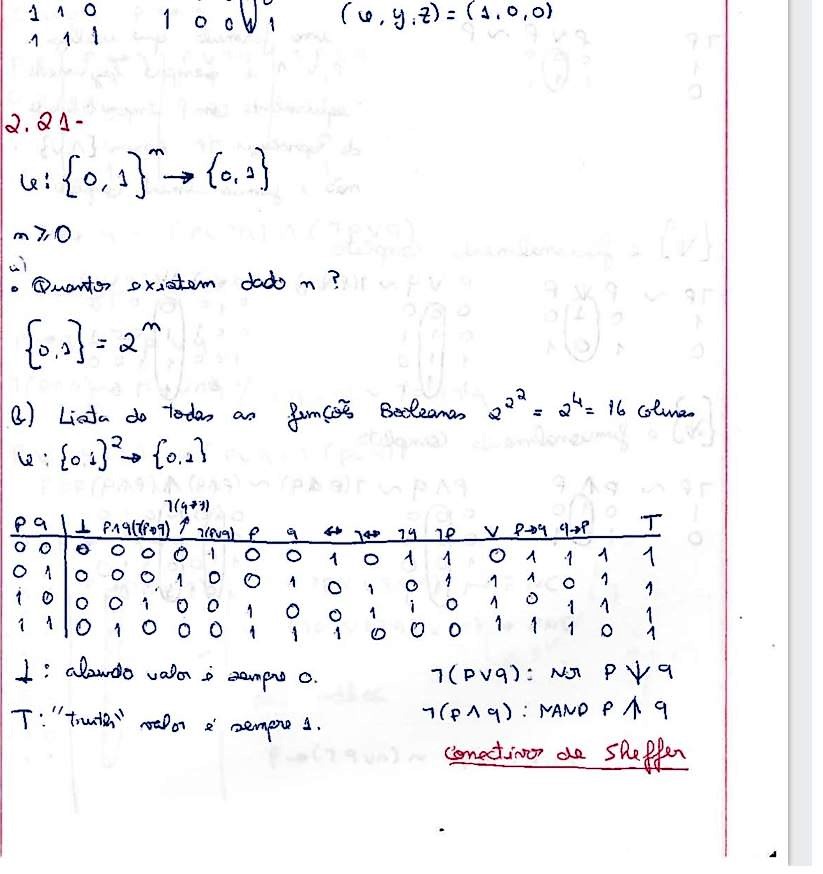 1 1 0 1 0 0 1 (φ, y, z) = (1, 0, 0)
1 1 1
2.21-
φ: {0, 1}ⁿ → {0, 1}
n ≥ 0
a)
• Quantos existem dado n?
{0, 1} = 2ⁿ
b) Lista de todas as funções Booleanas 2^2^2 = 2⁴ = 16 colunas
φ: {0, 1}² → {0, 1}
¬(q→p)
p q | ⊥ p∧q ¬(p→q) ↑ ¬(p∨q) p q ↔ ¬↔ ¬q ¬p ∨ p→q q→p T
0 0 | 0 0 0 0 1 0 0 1 0 1 1 0 1 1 1 1
0 1 | 0 0 0 1 0 0 1 0 1 0 1 1 1 0 1 1
1 0 | 0 0 1 0 0 1 0 0 1 1 0 1 0 1 1 1
1 1 | 0 1 0 0 0 1 1 1 0 0 0 1 1 1 0 1
⊥: valor é sempre 0. ¬(p∨q): NOR p ↓ q
T: "truth" valor é sempre 1. ¬(p∧q): NAND p ↑ q
Conectivos de Sheffer